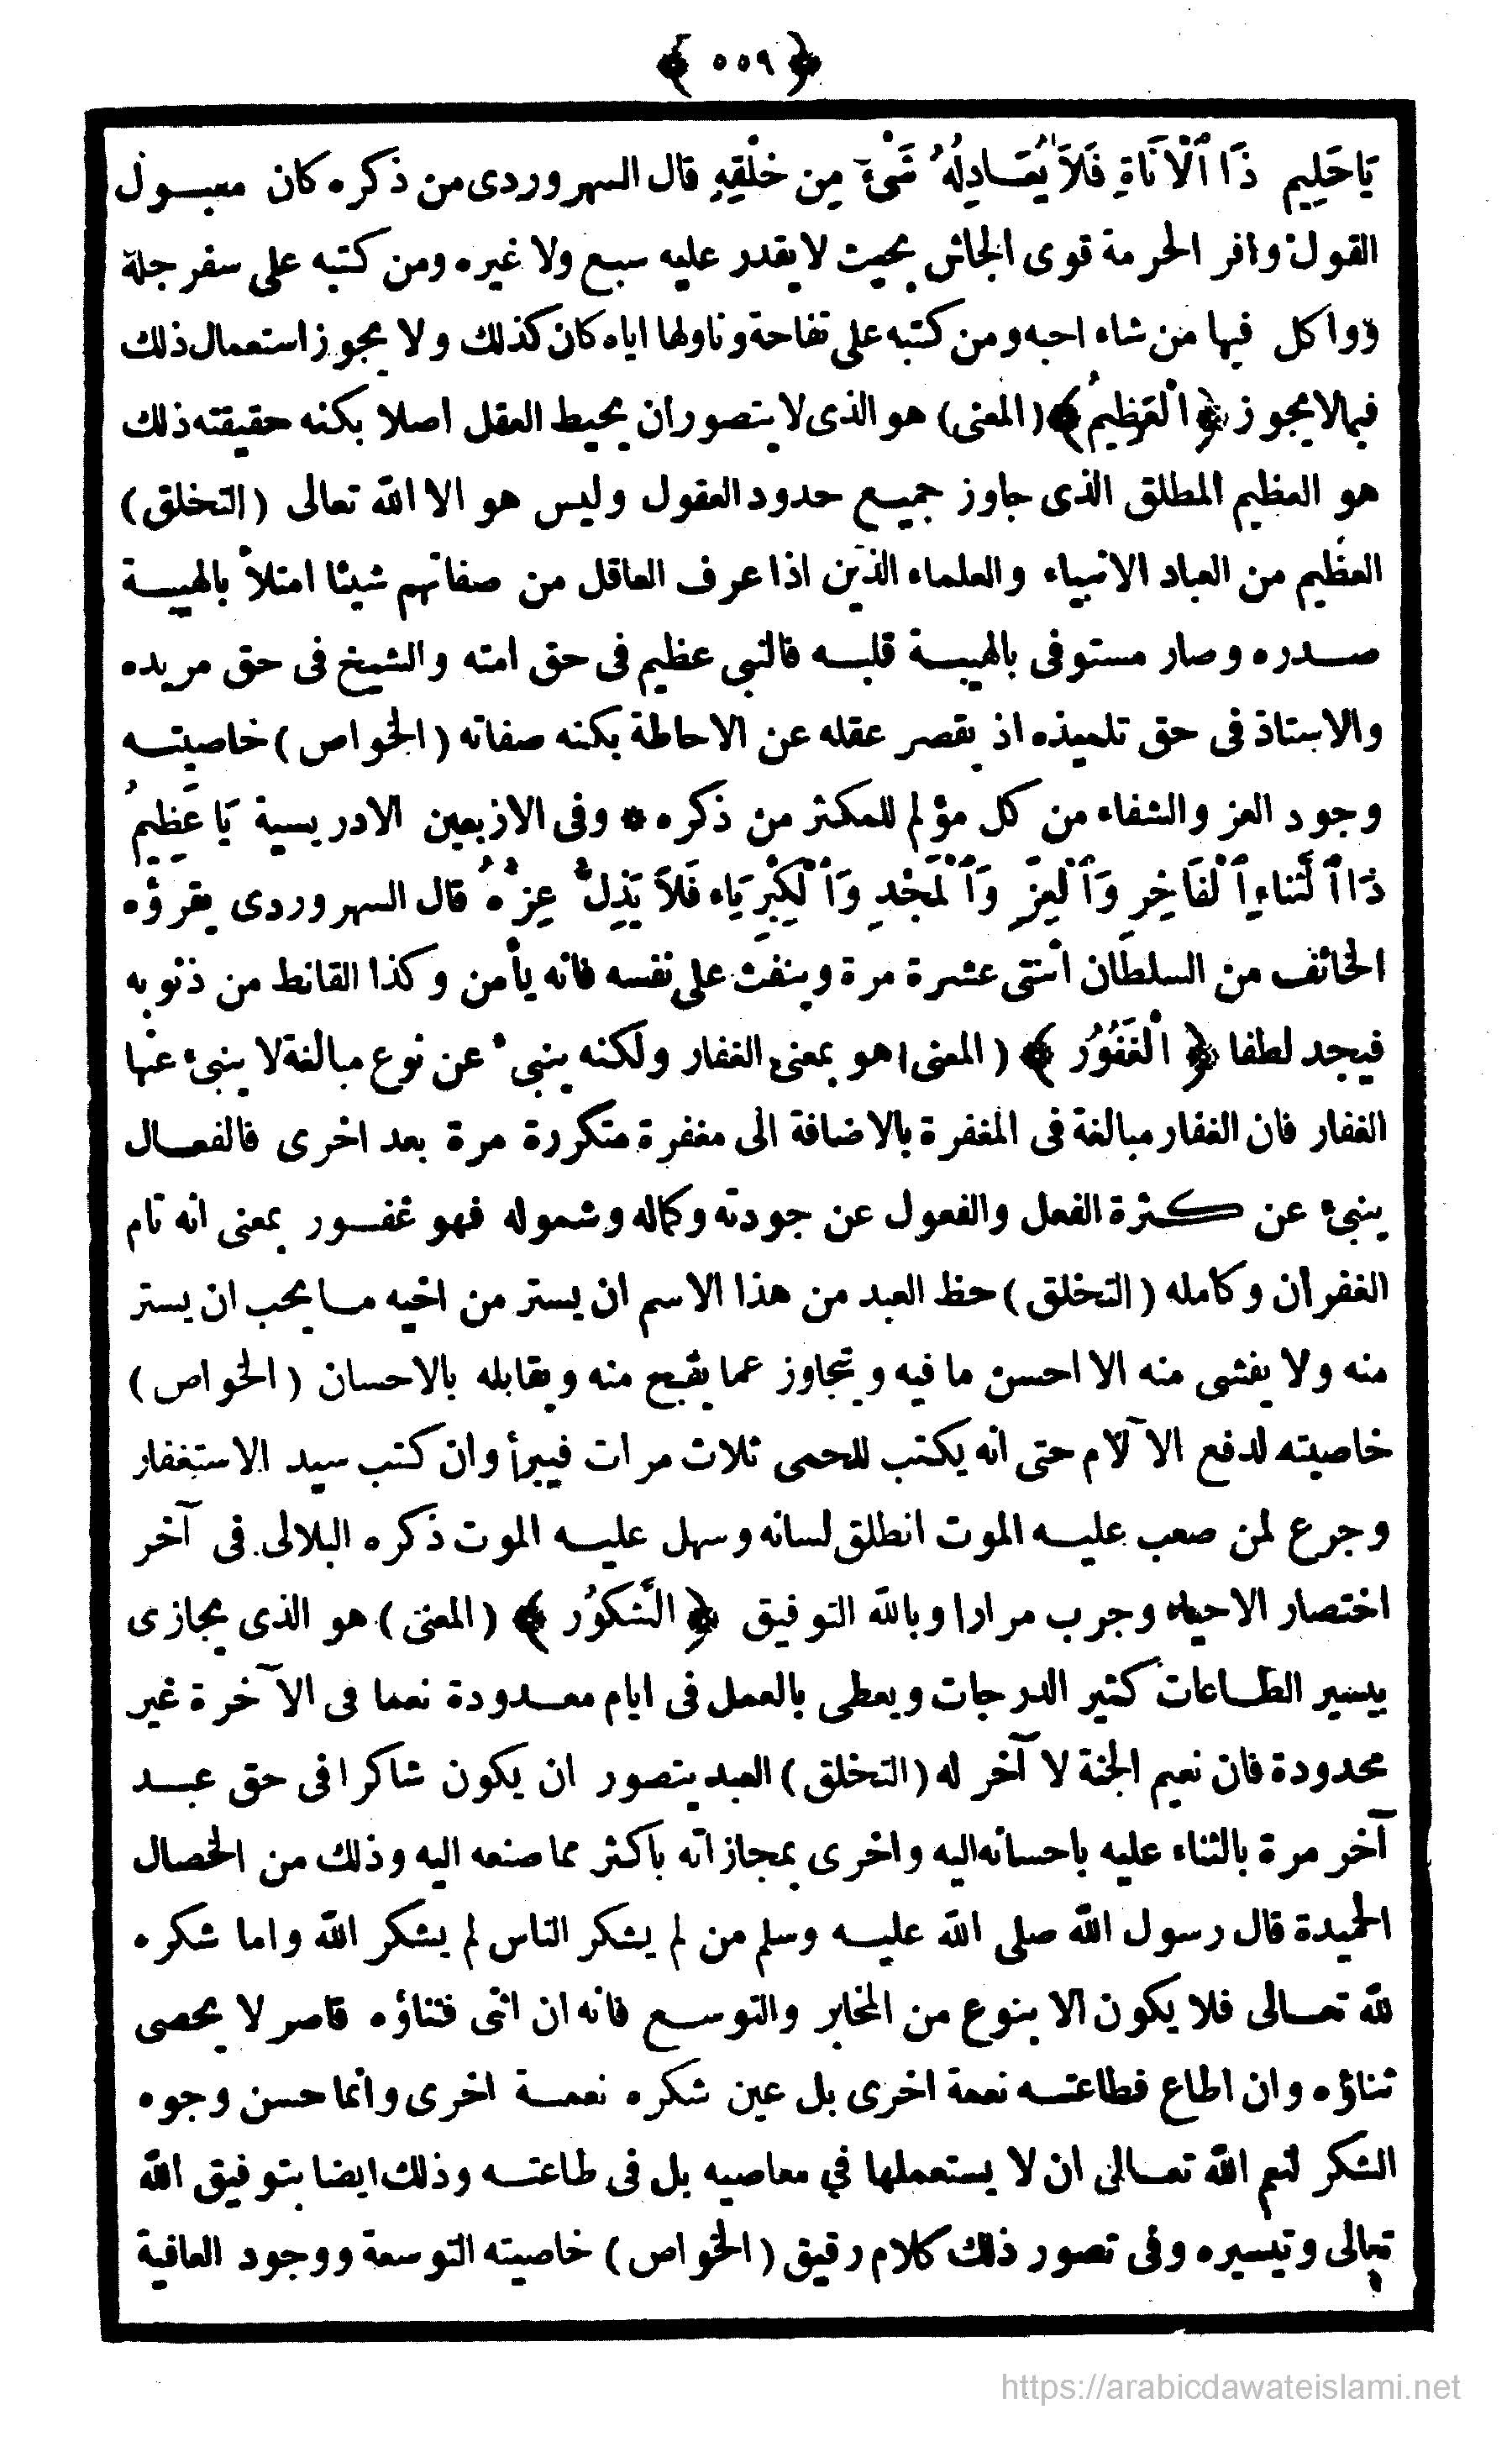 ﴿ ٥٥٩ ﴾
يَاحَلِيم ذَا ٱلْأَنَاةِ فَلاَ يُعَادِلُهُ شَىْءٌ مِن خَلْقِهِ قال السهروردى من ذكره كان مقبول
القول وافر الحرمة قوى الجاش بحيث لا يقدر عليه سبع ولا غيره ومن كتبه على سفرجلة
وواكل فيها من شاء احبه ومن كتبه على تفاحة وناولها اياه كان كذلك ولا يجوز استعمال ذلك
فيما لا يجوز ﴿ الْعَظِيمُ ﴾ (المعنى) هو الذى لا يتصور ان يحيط العقل اصلا بكنه حقيقته ذلك
هو العظيم المطلق الذى جاوز جميع حدود العقول وليس هو الا الله تعالى (التخلق)
العظيم من العباد الانبياء والعلماء الذين اذا عرف العاقل من صفاتهم شيئا امتلأ بالهيبة
صدره وصار مستوفى بالهيبة قلبه فالنبى عظيم فى حق امته والشيخ فى حق مريده
والاستاذ فى حق تلميذه اذ يقصر عقله عن الاحاطة بكنه صفاته (الخواص) خاصيته
وجود العز والشفاء من كل مؤلم للمكثر من ذكره * وفى الاربعين الادريسية يَا عَظِيمُ
ذَا ٱلثَّناءِ ٱلْفَاخِرِ وَٱلْعِزِّ وَٱلْمَجْدِ وَٱلْكِبْرِيَاء فَلاَ يَذِلُّ عِزُّهُ قال السهروردى يقرؤه
الخائف من السلطان اثنتى عشرة مرة وينفث على نفسه فانه يأمن وكذا القانط من ذنوبه
فيجد لطفا ﴿ الْغَفُورُ ﴾ (المعنى) هو بمعنى الغفار ولكنه ينبئ عن نوع مبالغة لا ينبئ عنها
الغفار فان الغفار مبالغة فى المغفرة بالاضافة الى مغفرة متكررة مرة بعد اخرى فالفعال
ينبئ عن كثرة الفعل والفعول عن جودته وكماله وشموله فهو غفور بمعنى انه تام
الغفران وكامله (التخلق) حظ العبد من هذا الاسم ان يستر من اخيه ما يحب ان يستر
منه ولا يفشى منه الا احسن ما فيه ويتجاوز عما يقبح منه ويقابله بالاحسان (الخواص)
خاصيته لدفع الآلام حتى انه يكتب للحمى ثلاث مرات فيبرأ وان كتب سيد الاستغفار
وجرع لمن صعب عليه الموت انطلق لسانه وسهل عليه الموت ذكره البلالى فى آخر
اختصار الاحياء وجرب مرارا وبالله التوفيق ﴿ الشَّكُورُ ﴾ (المعنى) هو الذى يجازى
بيسير الطاعات كثير الدرجات ويعطى بالعمل فى ايام معدودة نعما فى الآخرة غير
محدودة فان نعيم الجنة لا آخر له (التخلق) العبد يتصور ان يكون شاكرا فى حق عبد
آخر مرة بالثناء عليه باحسانه اليه واخرى بمجازاته باكثر مما صنعه اليه وذلك من الخصال
الحميدة قال رسول الله صلى الله عليه وسلم من لم يشكر الناس لم يشكر الله واما شكره
لله تعالى فلا يكون الا بنوع من المخابر والتوسع فانه ان اثنى فثناؤه قاصر لا يحصى
ثناؤه وان اطاع فطاعته نعمة اخرى بل عين شكره نعمة اخرى وانما حسن وجوه
الشكر لنعم الله تعالى ان لا يستعملها في معاصيه بل فى طاعته وذلك ايضا بتوفيق الله
تعالى وتيسيره وفى تصور ذلك كلام رقيق (الخواص) خاصيته التوسعة ووجود العافية
https://arabicdawateislami.net